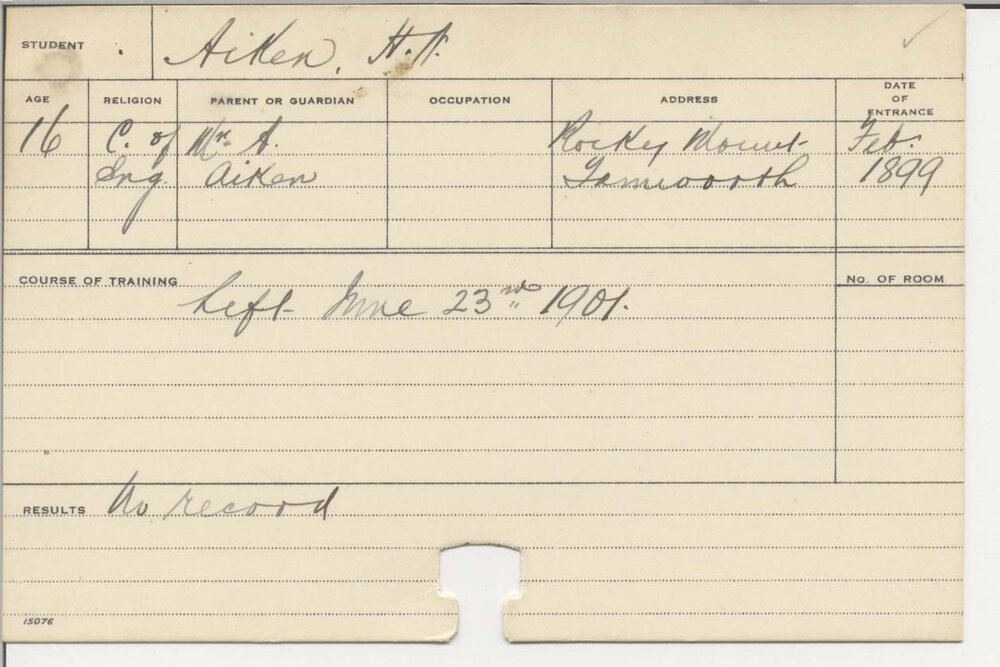 STUDENT Aiken, H.H.
AGE RELIGION PARENT OR GUARDIAN OCCUPATION ADDRESS DATE OF ENTRANCE
16 C. of Mr A. Rocky Mount Feb.
Eng. Aiken Tamworth 1899
COURSE OF TRAINING No. OF ROOM
Left June 23rd 1901.
RESULTS No record
15076